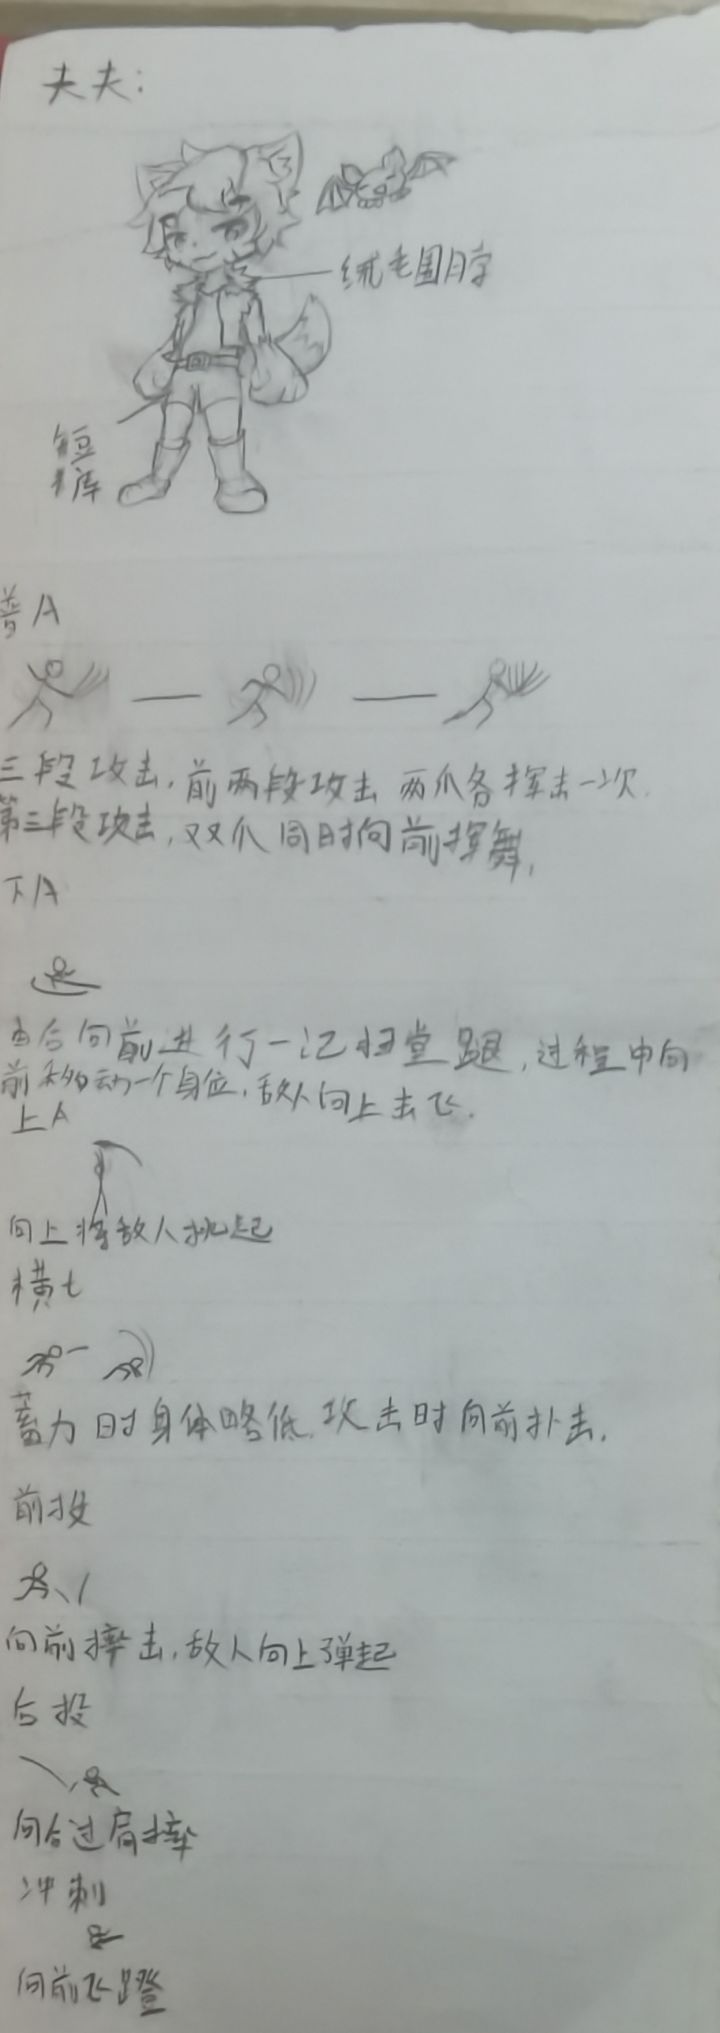 夫夫:
绒毛围脖
短
裤
普A
三段攻击,前两段攻击两爪各挥击一次.
第三段攻击,双爪同时向前挥舞,
下A
由后向前进行一记扫堂腿,过程中向
前移动一个身位,敌人向上击飞.
上A
向上将敌人挑起
横
蓄力时身体略低,攻击时向前扑击.
前投
向前摔击,敌人向上弹起
后投
向后过肩摔
冲刺
向前飞蹬